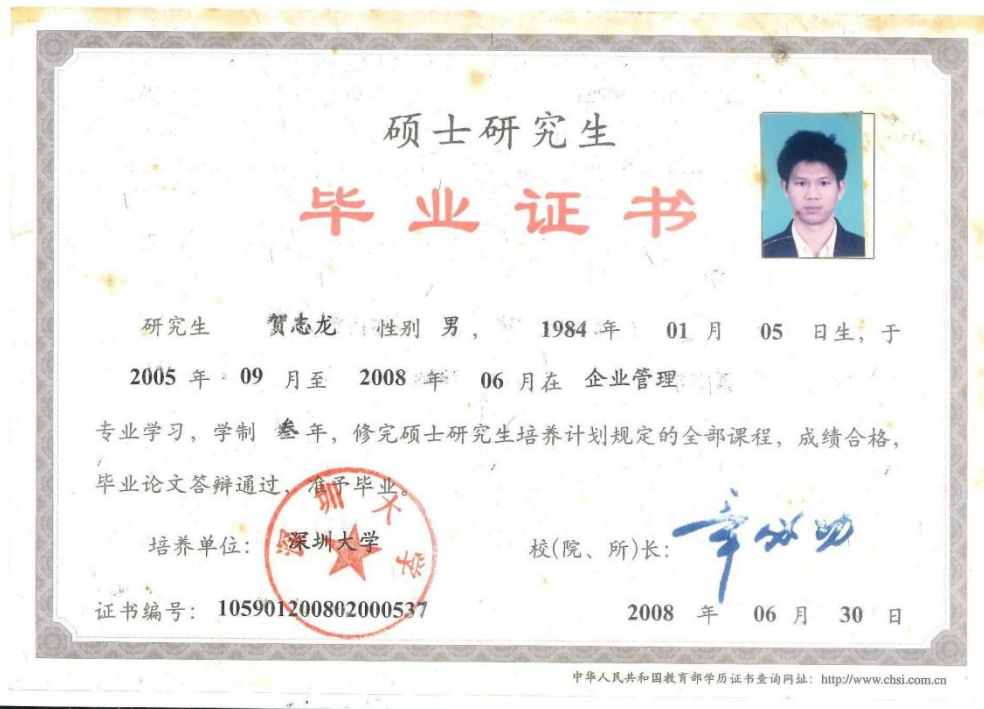 硕士研究生
毕业证书
研究生 贺志龙 性别 男， 1984 年 01 月 05 日生，于
2005 年 09 月至 2008 年 06 月在 企业管理
专业学习，学制 叁 年，修完硕士研究生培养计划规定的全部课程，成绩合格，
毕业论文答辩通过，准予毕业。
深圳大学
培养单位： 深圳大学 校(院、所)长： 章必功
证书编号： 105901200802000537 2008 年 06 月 30 日
中华人民共和国教育部学历证书查询网址：http://www.chsi.com.cn